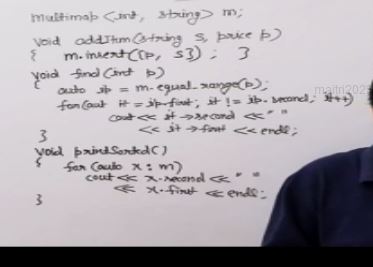 multimap <int, string> m;
void addItem(string s, price p)
{ m.insert({p, s}); }
void find(int p)
{ auto ip = m.equal_range(p);
for(aut it = ip.first; it != ip.second; it++)
cout << it->second << " "
<< it->first << endl;
}
void printSorted()
{ for (auto x : m)
cout << x.second << " "
<< x.first << endl;
}